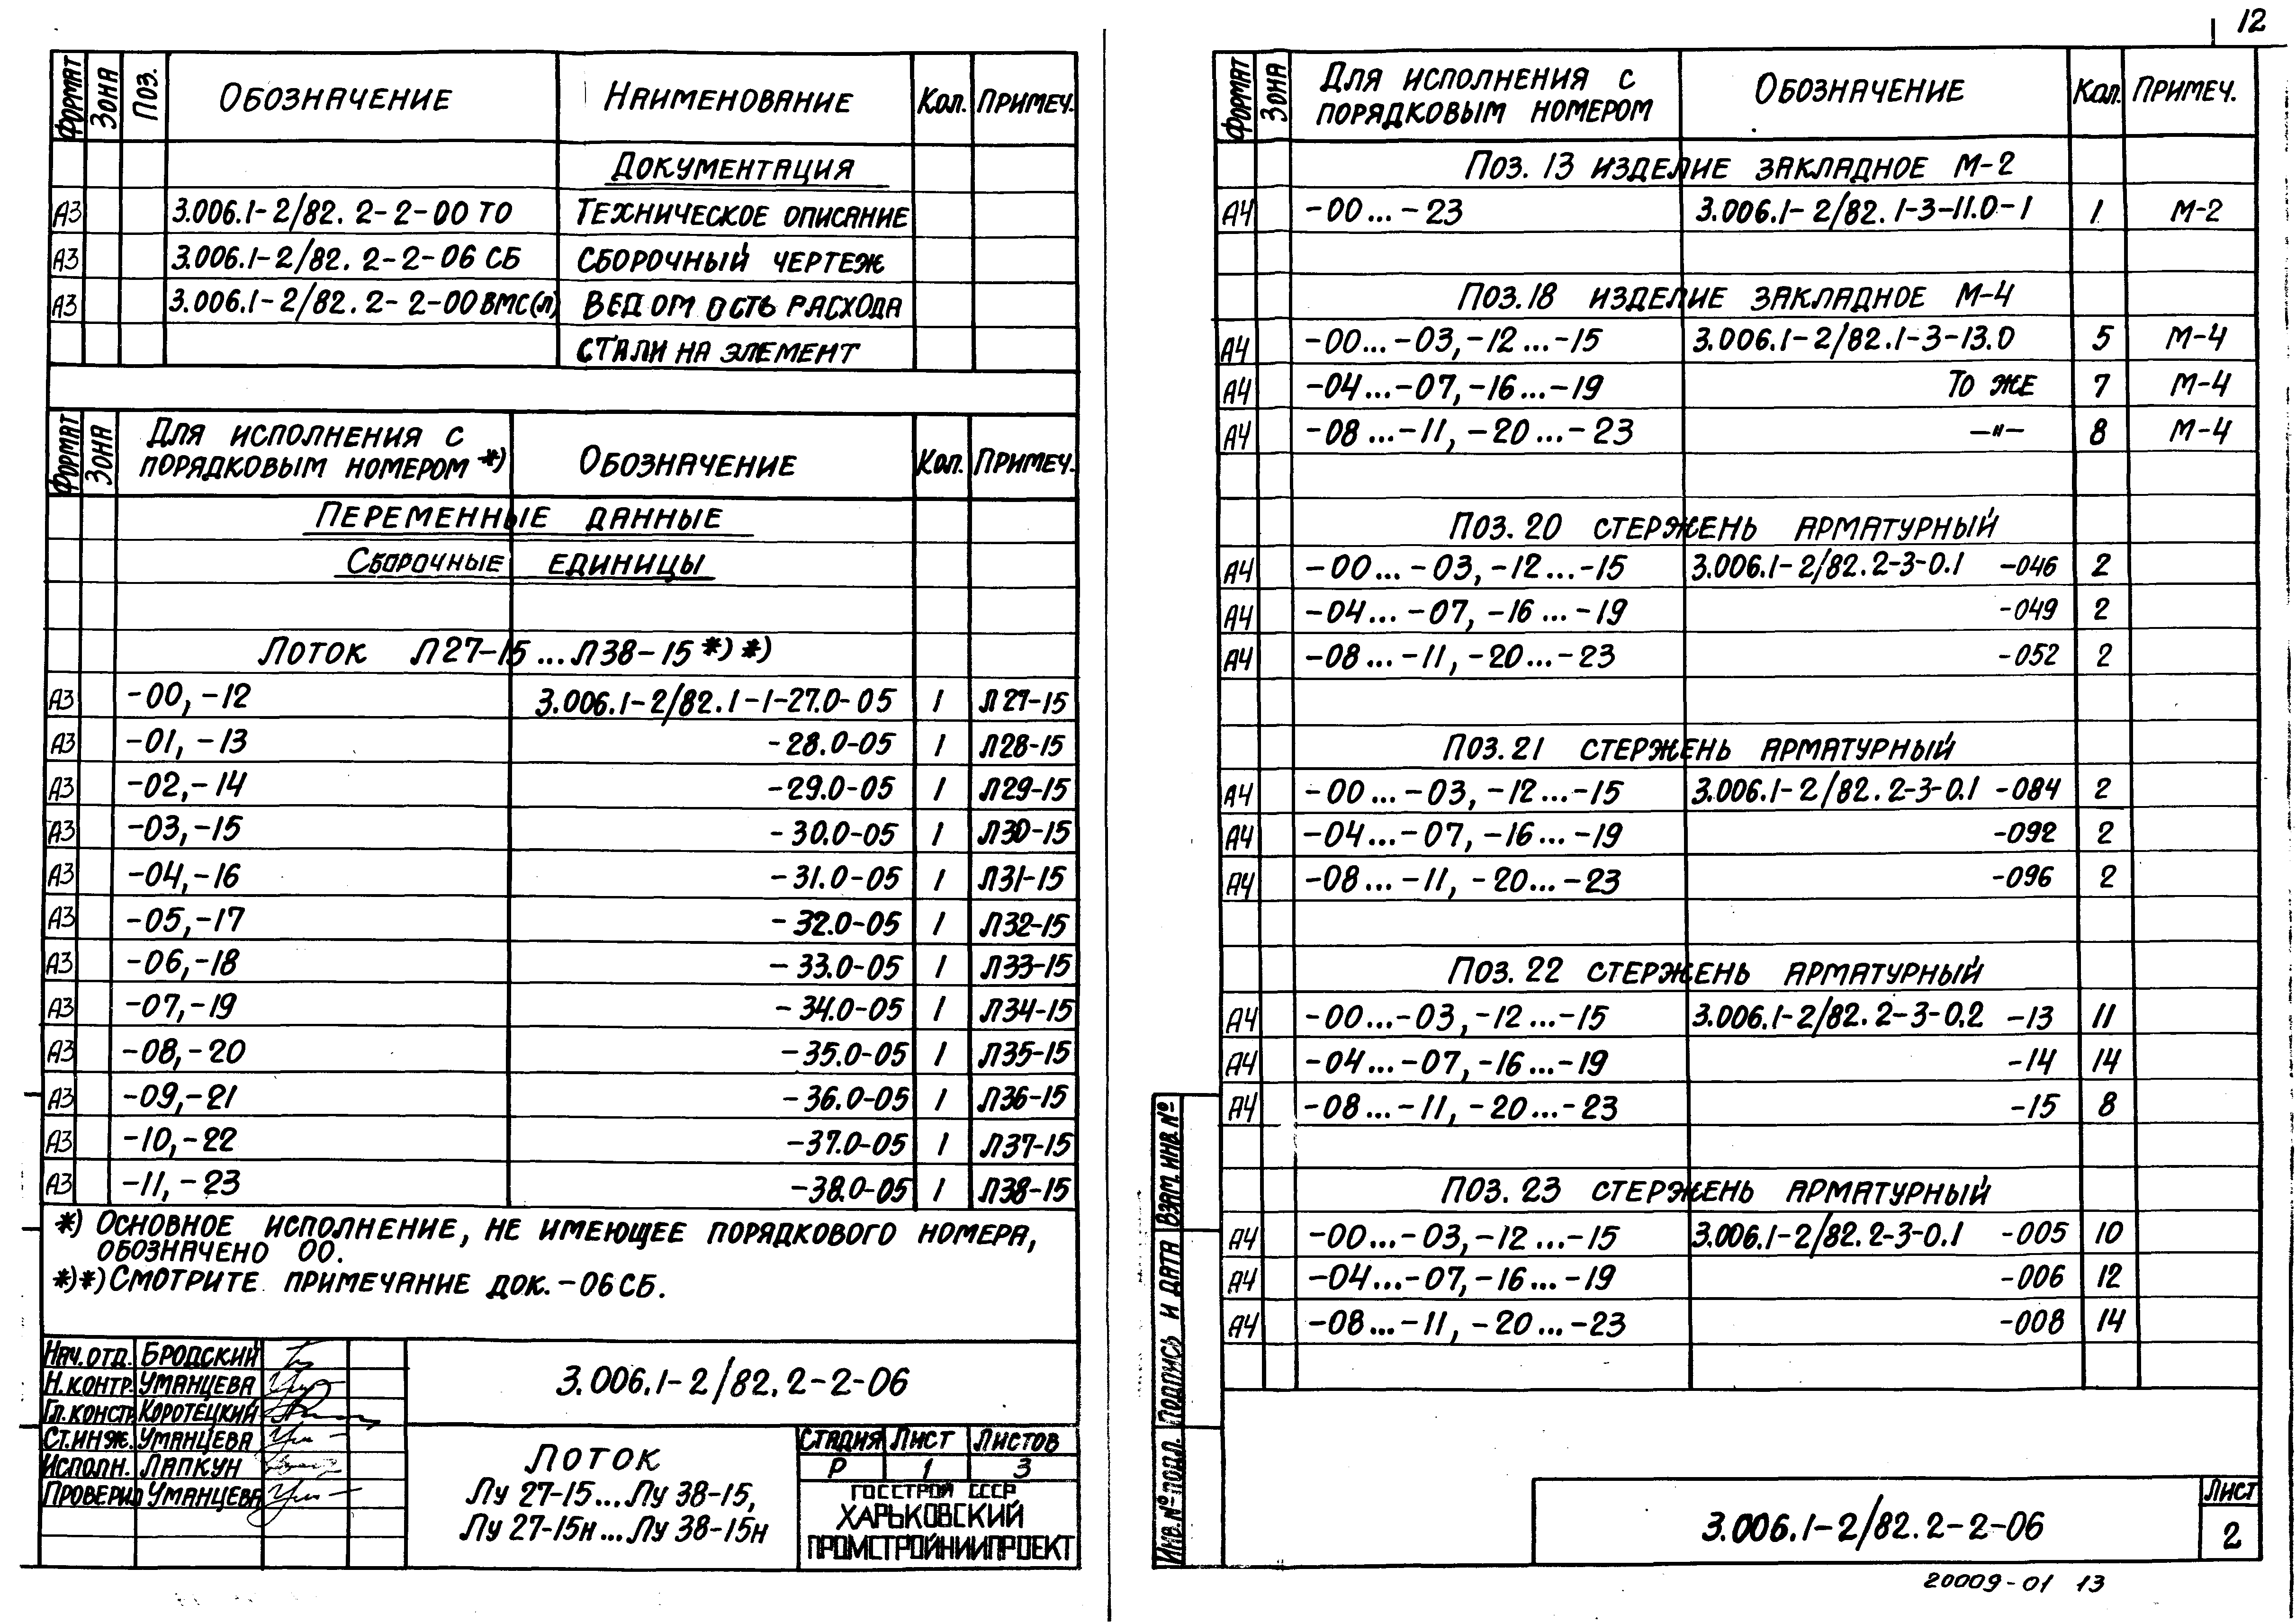 12
ФОРМАТ ЗОНА ПОЗ. ОБОЗНАЧЕНИЕ НАИМЕНОВАНИЕ КОЛ. ПРИМЕЧ.
ДОКУМЕНТАЦИЯ
А3 3.006.1-2/82. 2-2-00 ТО ТЕХНИЧЕСКОЕ ОПИСАНИЕ
А3 3.006.1-2/82. 2-2-06 СБ СБОРОЧНЫЙ ЧЕРТЕЖ
А3 3.006.1-2/82. 2-2-00ВМС(Л) ВЕДОМОСТЬ РАСХОДА
СТАЛИ НА ЭЛЕМЕНТ
ФОРМАТ ЗОНА ДЛЯ ИСПОЛНЕНИЯ С ПОРЯДКОВЫМ НОМЕРОМ *) ОБОЗНАЧЕНИЕ КОЛ. ПРИМЕЧ.
ПЕРЕМЕННЫЕ ДАННЫЕ
СБОРОЧНЫЕ ЕДИНИЦЫ
ЛОТОК Л27-15...Л38-15 *) *)
А3 -00, -12 3.006.1-2/82.1-1-27.0-05 1 Л27-15
А3 -01, -13 -28.0-05 1 Л28-15
А3 -02, -14 -29.0-05 1 Л29-15
А3 -03, -15 -30.0-05 1 Л30-15
А3 -04, -16 -31.0-05 1 Л31-15
А3 -05, -17 -32.0-05 1 Л32-15
А3 -06, -18 -33.0-05 1 Л33-15
А3 -07, -19 -34.0-05 1 Л34-15
А3 -08, -20 -35.0-05 1 Л35-15
А3 -09, -21 -36.0-05 1 Л36-15
А3 -10, -22 -37.0-05 1 Л37-15
А3 -11, -23 -38.0-05 1 Л38-15
*) ОСНОВНОЕ ИСПОЛНЕНИЕ, НЕ ИМЕЮЩЕЕ ПОРЯДКОВОГО НОМЕРА,
ОБОЗНАЧЕНО 00.
*)*) СМОТРИТЕ ПРИМЕЧАНИЕ ДОК. -06СБ.
НАЧ.ОТД. БРОДСКИЙ
Н.КОНТР. УМАНЦЕВА
ГЛ.КОНСТР. КОРОТЕЦКИЙ
СТ.ИНЖ. УМАНЦЕВА
ИСПОЛН. ЛАПКУН
ПРОВЕРИЛ УМАНЦЕВА
3.006.1-2/82.2-2-06
ЛОТОК
Лу 27-15...Лу 38-15,
Лу 27-15н...Лу 38-15н
СТАДИЯ ЛИСТ ЛИСТОВ
Р 1 3
ГОССТРОЙ СССР
ХАРЬКОВСКИЙ
ПРОМСТРОЙНИИПРОЕКТ
ФОРМАТ ЗОНА ДЛЯ ИСПОЛНЕНИЯ С ПОРЯДКОВЫМ НОМЕРОМ ОБОЗНАЧЕНИЕ КОЛ. ПРИМЕЧ.
ПОЗ. 13 ИЗДЕЛИЕ ЗАКЛАДНОЕ М-2
А4 -00...-23 3.006.1-2/82.1-3-11.0-1 1 М-2
ПОЗ.18 ИЗДЕЛИЕ ЗАКЛАДНОЕ М-4
А4 -00...-03, -12...-15 3.006.1-2/82.1-3-13.0 5 М-4
А4 -04...-07, -16...-19 ТО ЖЕ 7 М-4
А4 -08...-11, -20...-23 —"— 8 М-4
ПОЗ. 20 СТЕРЖЕНЬ АРМАТУРНЫЙ
А4 -00...-03, -12...-15 3.006.1-2/82.2-3-0.1 -046 2
А4 -04...-07, -16...-19 -049 2
А4 -08...-11, -20...-23 -052 2
ПОЗ.21 СТЕРЖЕНЬ АРМАТУРНЫЙ
А4 -00...-03, -12...-15 3.006.1-2/82.2-3-0.1 -084 2
А4 -04...-07, -16...-19 -092 2
А4 -08...-11, -20...-23 -096 2
ПОЗ. 22 СТЕРЖЕНЬ АРМАТУРНЫЙ
А4 -00...-03, -12...-15 3.006.1-2/82.2-3-0.2 -13 11
А4 -04...-07, -16...-19 -14 14
А4 -08...-11, -20...-23 -15 8
ПОЗ. 23 СТЕРЖЕНЬ АРМАТУРНЫЙ
А4 -00...-03, -12...-15 3.006.1-2/82.2-3-0.1 -005 10
А4 -04...-07, -16...-19 -006 12
А4 -08...-11, -20...-23 -008 14
ИНВ.№ПОДЛ. ПОДПИСЬ И ДАТА ВЗАМ.ИНВ.№
3.006.1-2/82.2-2-06
ЛИСТ
2
20009-01 13